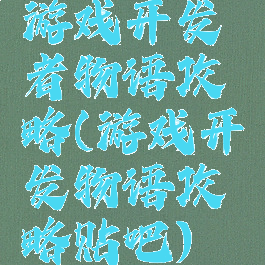 游戏开发
者物语攻
略(游戏开
发物语攻
略贴吧)